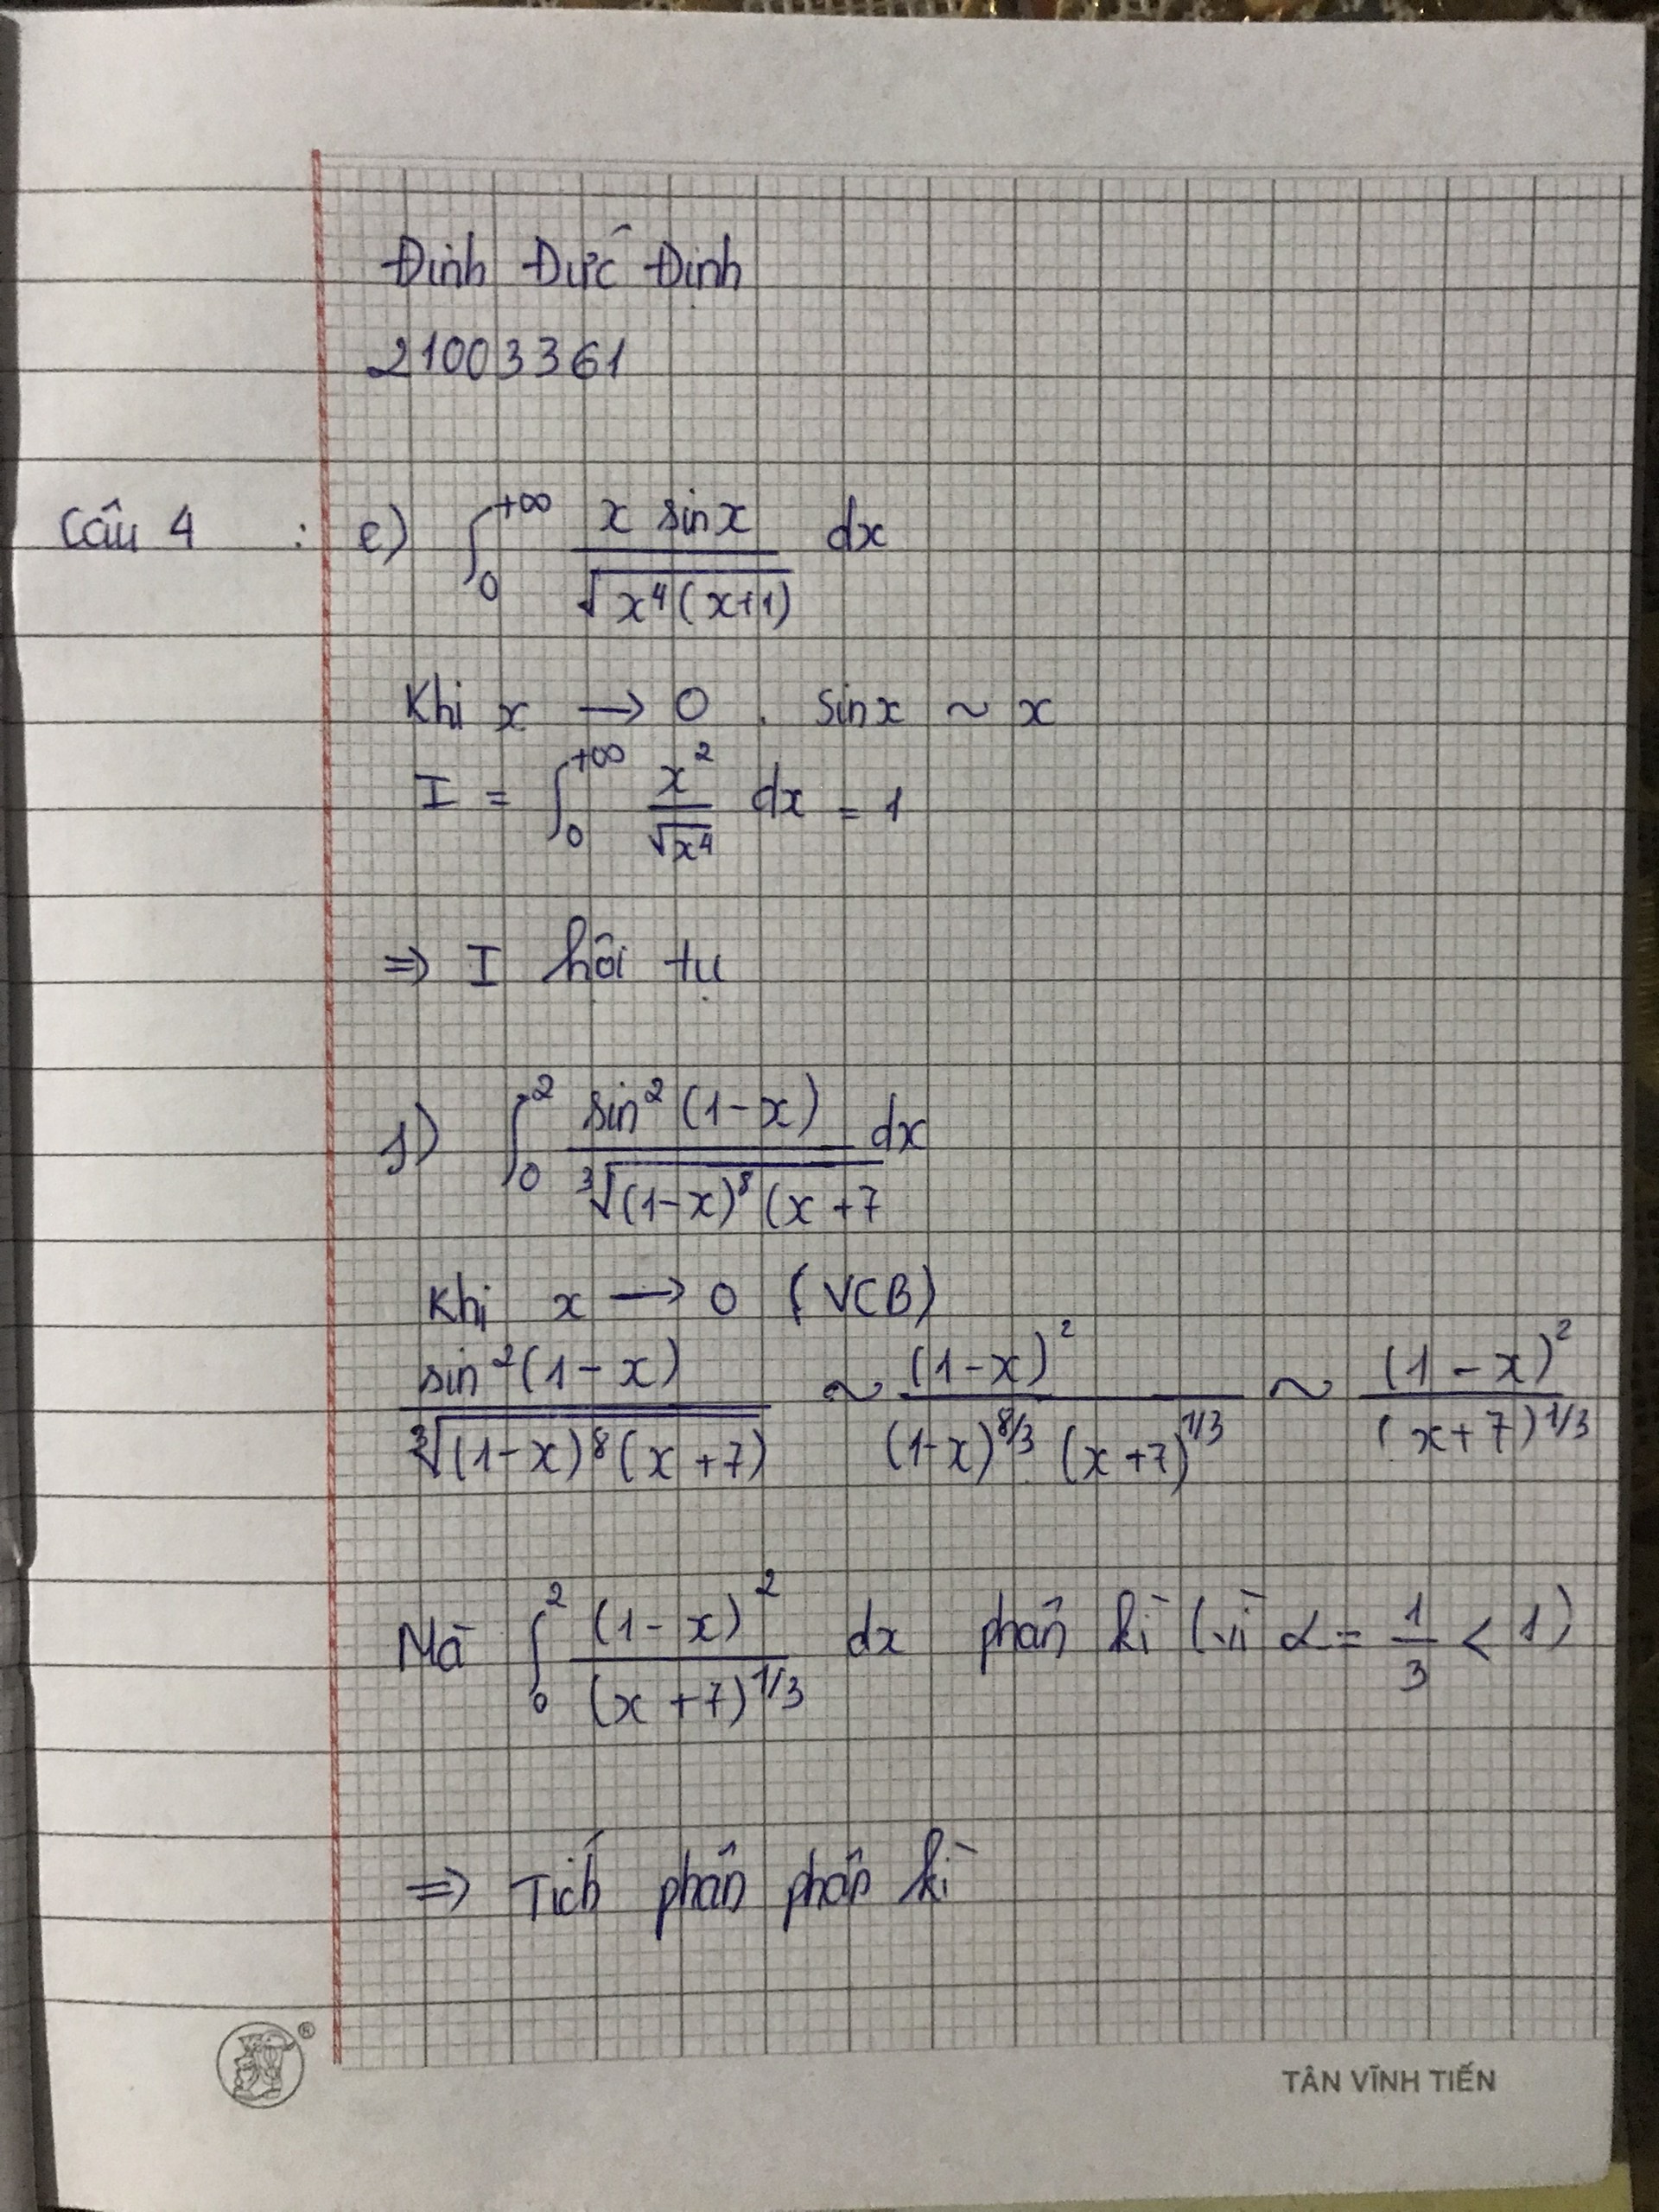 Đinh Đức Định
21003361
Câu 4 : e) ∫₀^{+∞} x sinx / √(x⁴(x+1)) dx
Khi x → 0 . sinx ~ x
I = ∫₀^{+∞} x² / √x⁴ dx = 1
⇒ I hội tụ
f) ∫₀² sin²(1-x) / ∛((1-x)⁸(x+7 dx
Khi x → 0 (VCB)
sin²(1-x) / ∛((1-x)⁸(x+7)) ~ (1-x)² / (1-x)^{8/3} (x+7)^{1/3} ~ (1-x)² / (x+7)^{1/3}
Mà ∫₀² (1-x)² / (x+7)^{1/3} dx phân kì (vì α = 1/3 < 1)
⇒ Tích phân phân kì
®
TÂN VĨNH TIẾN